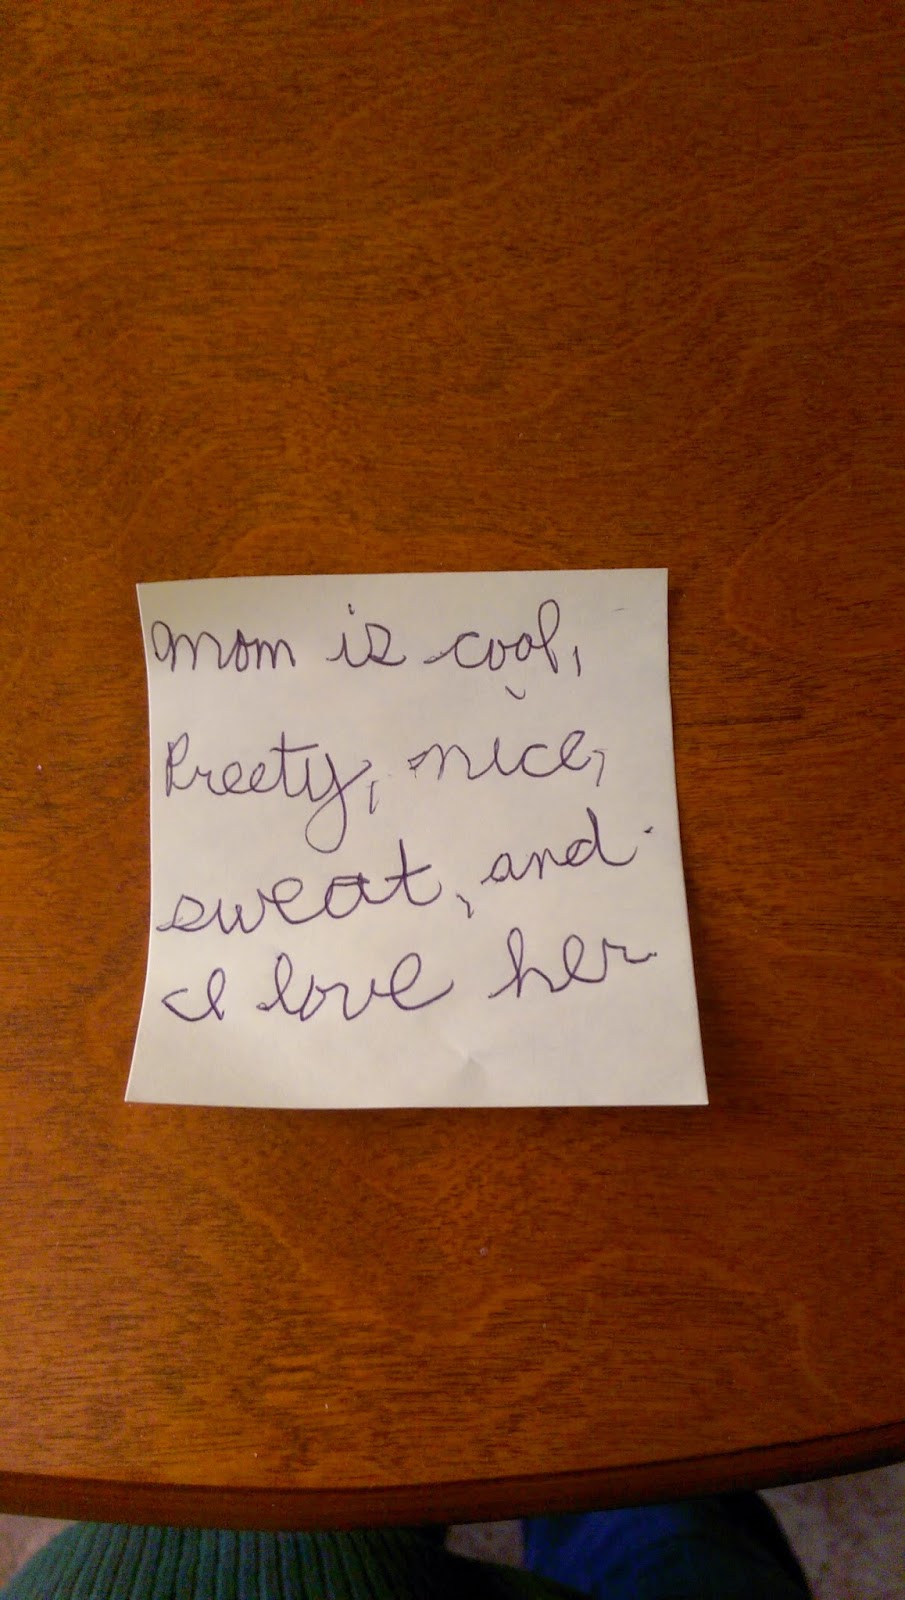 Mom is cool,
Preety, nice,
sweat, and
I love her.